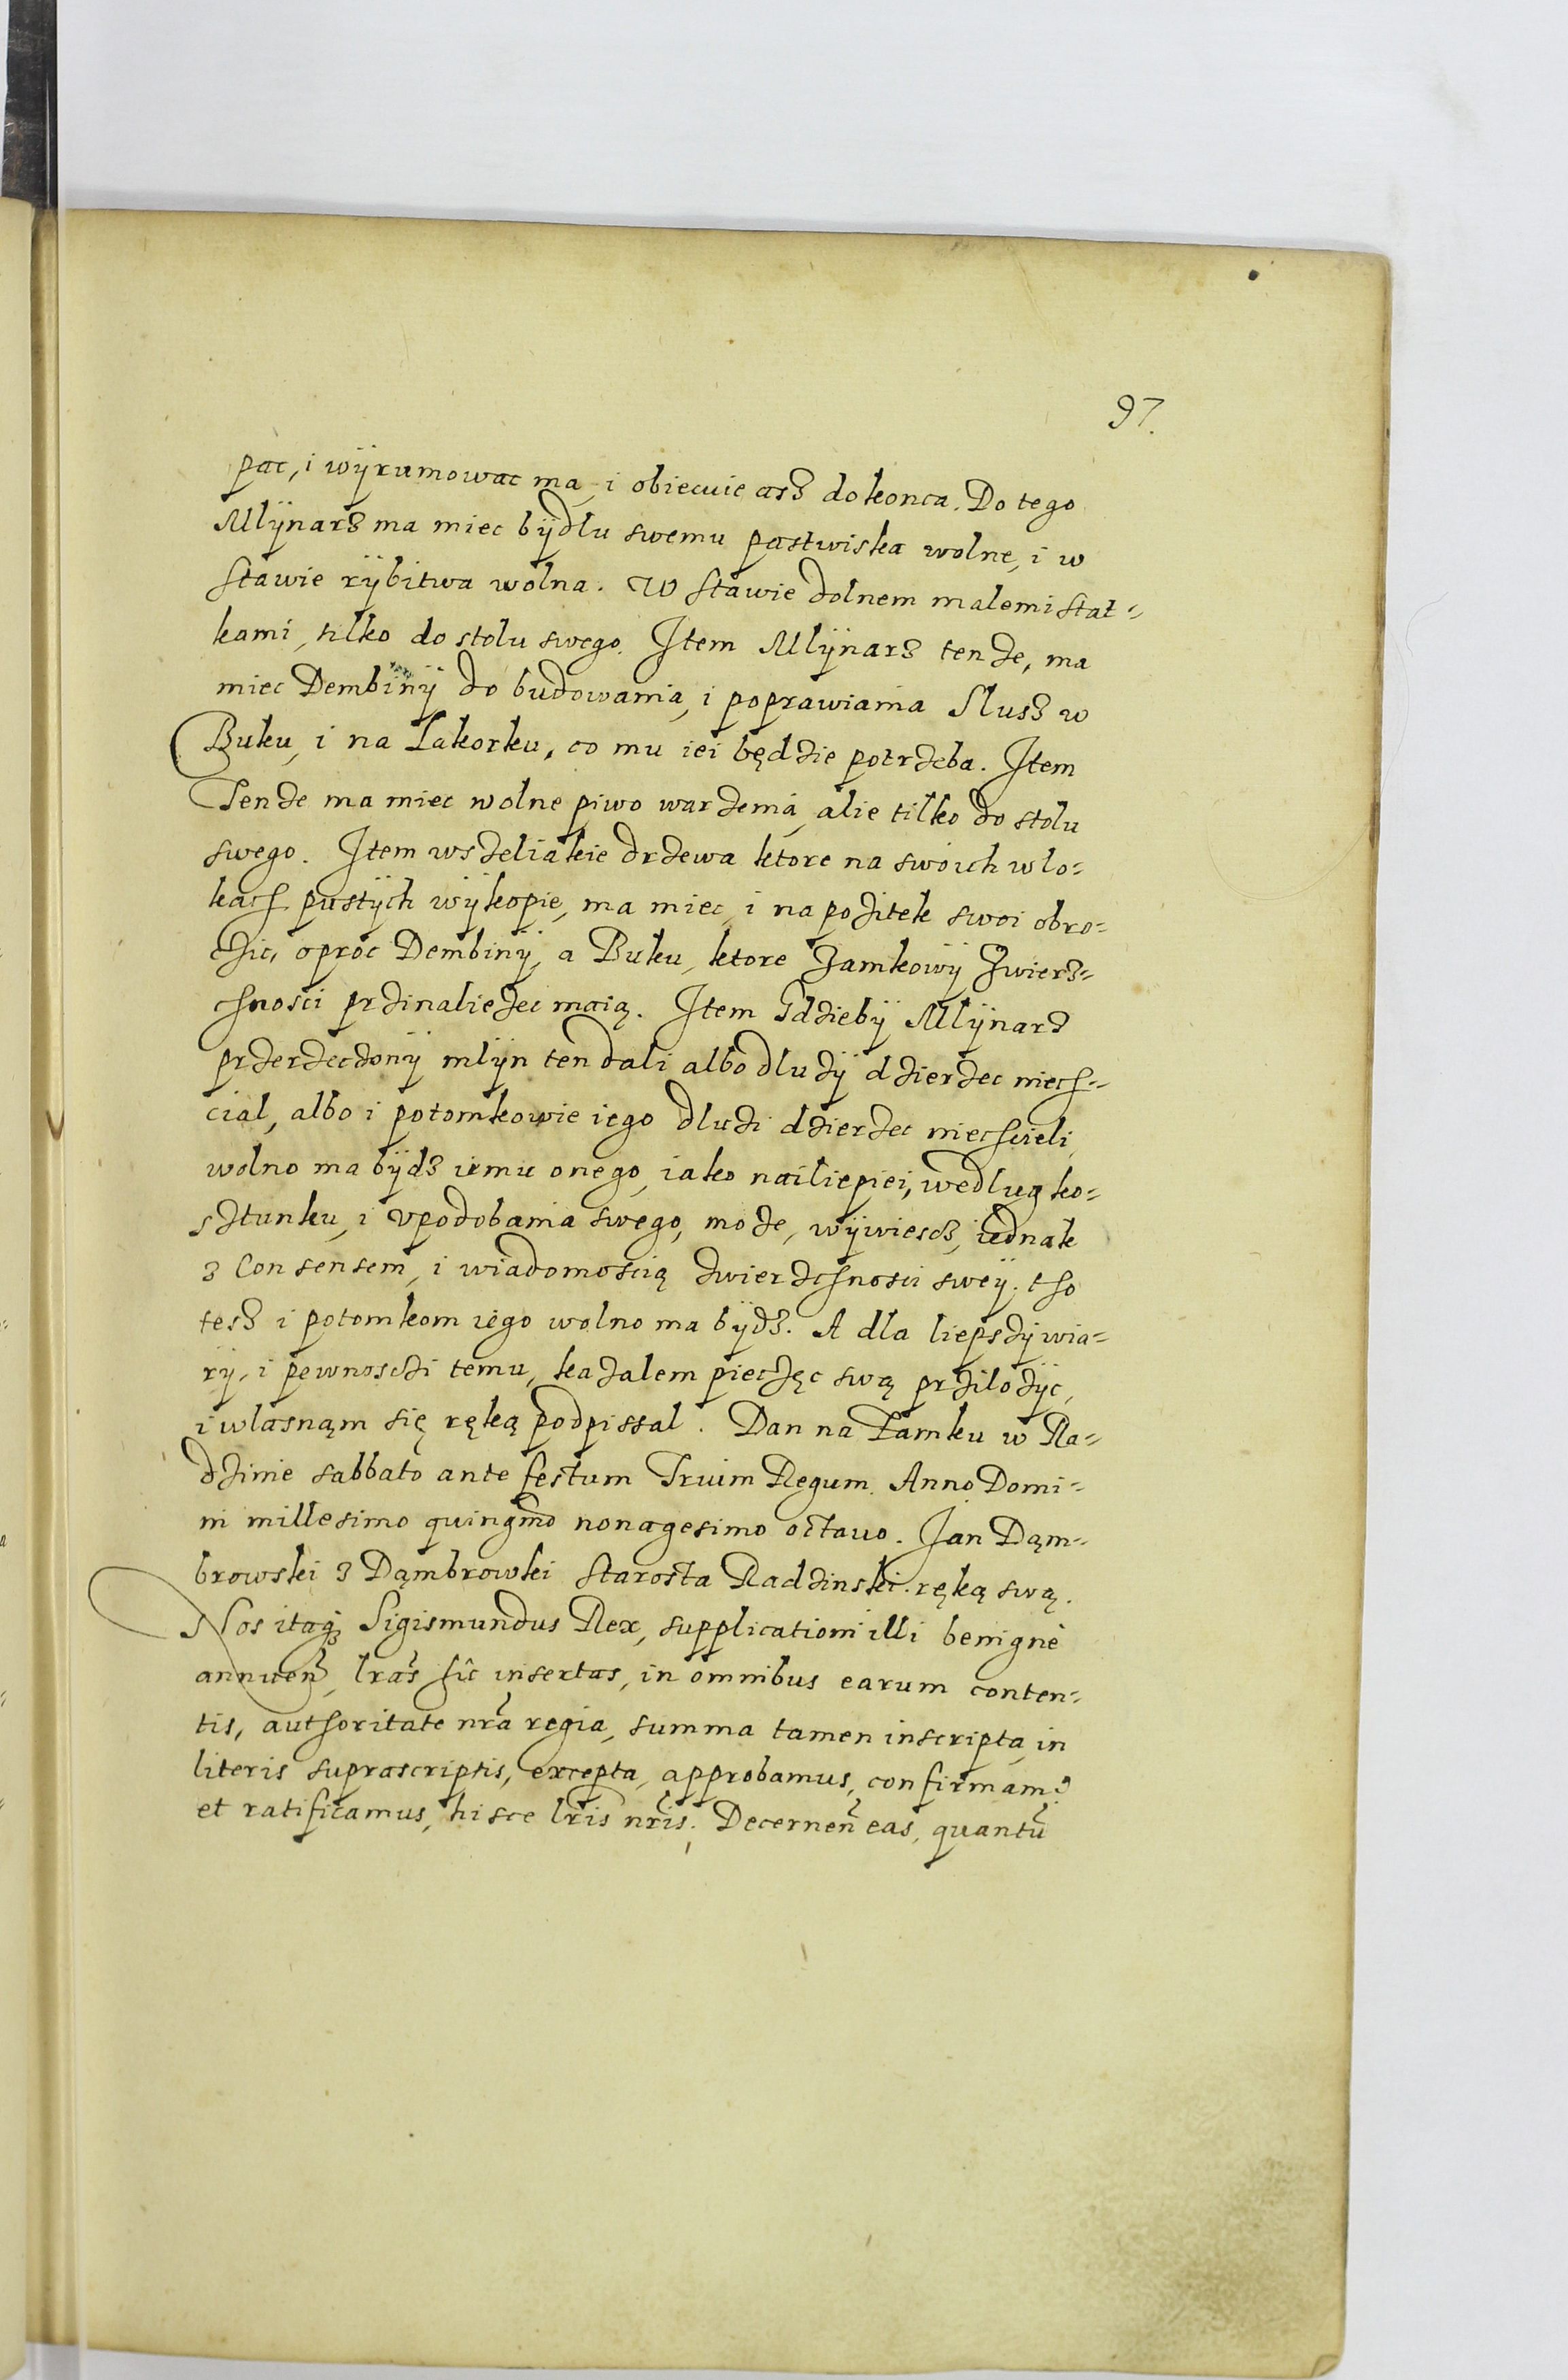 97.
pac, i wÿrumowac ma, i obiecuie asz do konca. Do tego
Mlÿnarz ma miec bÿdlu swemu pastwiska wolne, i w
stawie rÿbitwa wolna. W stawie dolnem malemi stat=
kami, tilko do stolu swego. Item Mlÿnarz tenze, ma
miec Dembinÿ do budowania, i poprawiania Slusz w
Buku, i na Lakorku, co mu iei będzie potrzeba. Item
Tenze ma miec wolne piwo warzenia, alie tilko do stolu
swego. Item wszeliakie drzewa ktore na swoich wlo=
kach pustÿch wÿkopie, ma miec, i na pozitek swoi obro=
czic, oproc Dembinÿ, a Buku, ktore Zamkowÿ Zwierz=
chnosci przinaliezec maią. Item Gdziebÿ Mlÿnarz
przerzeczonÿ mlÿn ten dali albo dluzÿ dzierzec niech=
cial, albo i potomkowie iego dluzi dzierzec niechcieli,
wolno ma bÿdz iemu onego, iako nailiepiei, wedlug ko=
sztunku, i vpodobania swego, moze, wÿwiescz, iednak
z Consensem, i wiadomoscią zwierzchnosci sweÿ. cho
tesz i potomkom iego wolno ma bÿdz. A dla liepszÿ wia=
rÿ, i pewnosczi temu, kazalem pieczęc swą przilozÿc,
i wlasnąm się ręką podpissal. Dan na Zamku w Ra=
dzinie sabbato ante festum Trium Regum. Anno Domi=
ni millesimo quingmo nonagesimo octauo. Jan Dąm=
browski z Dąmbrowki Starosta Radzinski. ręką swą.
Nos itaq Sigismundus Rex, supplicationi illi benigne
annuen, lras sic insertas, in omnibus earum conten=
tis, authoritate nra regia, summa tamen inscripta, in
literis suprascriptis, excepta, approbamus, confirmam9
et ratificamus, hisce lris nris. Decernen eas, quantū